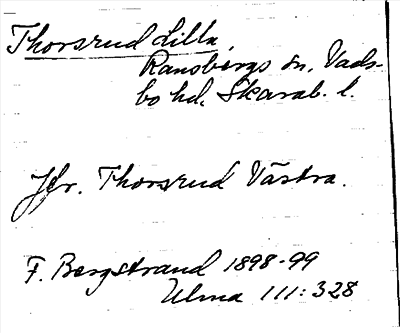 Thorsrud Lilla,
Ransbergs sn, Vads-
bo hd, Skarab. l.
Jfr. Thorsrud Västra.
F. Bergstrand 1898-99
Ulma 111:328